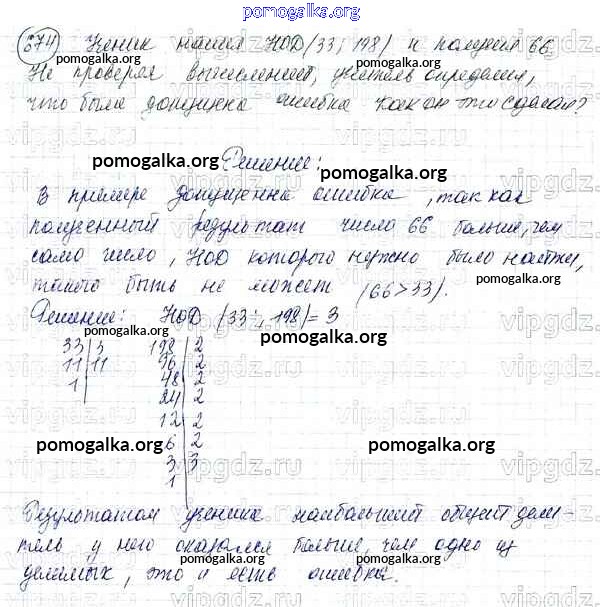 pomogalka.org
674 Ученик нашел НОД (33; 198) и получил 66.
pomogalka.org pomogalka.org
Не проверяя вычислений, учитель определил,
что была допущена ошибка. Как он это сделал?
pomogalka.org Решение: pomogalka.org
В примере допущенна ошибка, так как
pomogalka.org pomogalka.org
полученный результат число 66 больше, чем
само число, НОД которого нужно было найти,
pomogalka.org
такого быть не может (66>33).
Решение: НОД (33; 198) = 3
pomogalka.org
33 3 198 2
11 11 96 2
1 48 2
24 2
12 2
pomogalka.org 6 2 pomogalka.org
3 3
1
Результатом ученика наибольший общий дели-
тель у него оказался больше, чем одно из
pomogalka.org pomogalka.org
делимых, это и есть ошибка.
vipgdz.ru